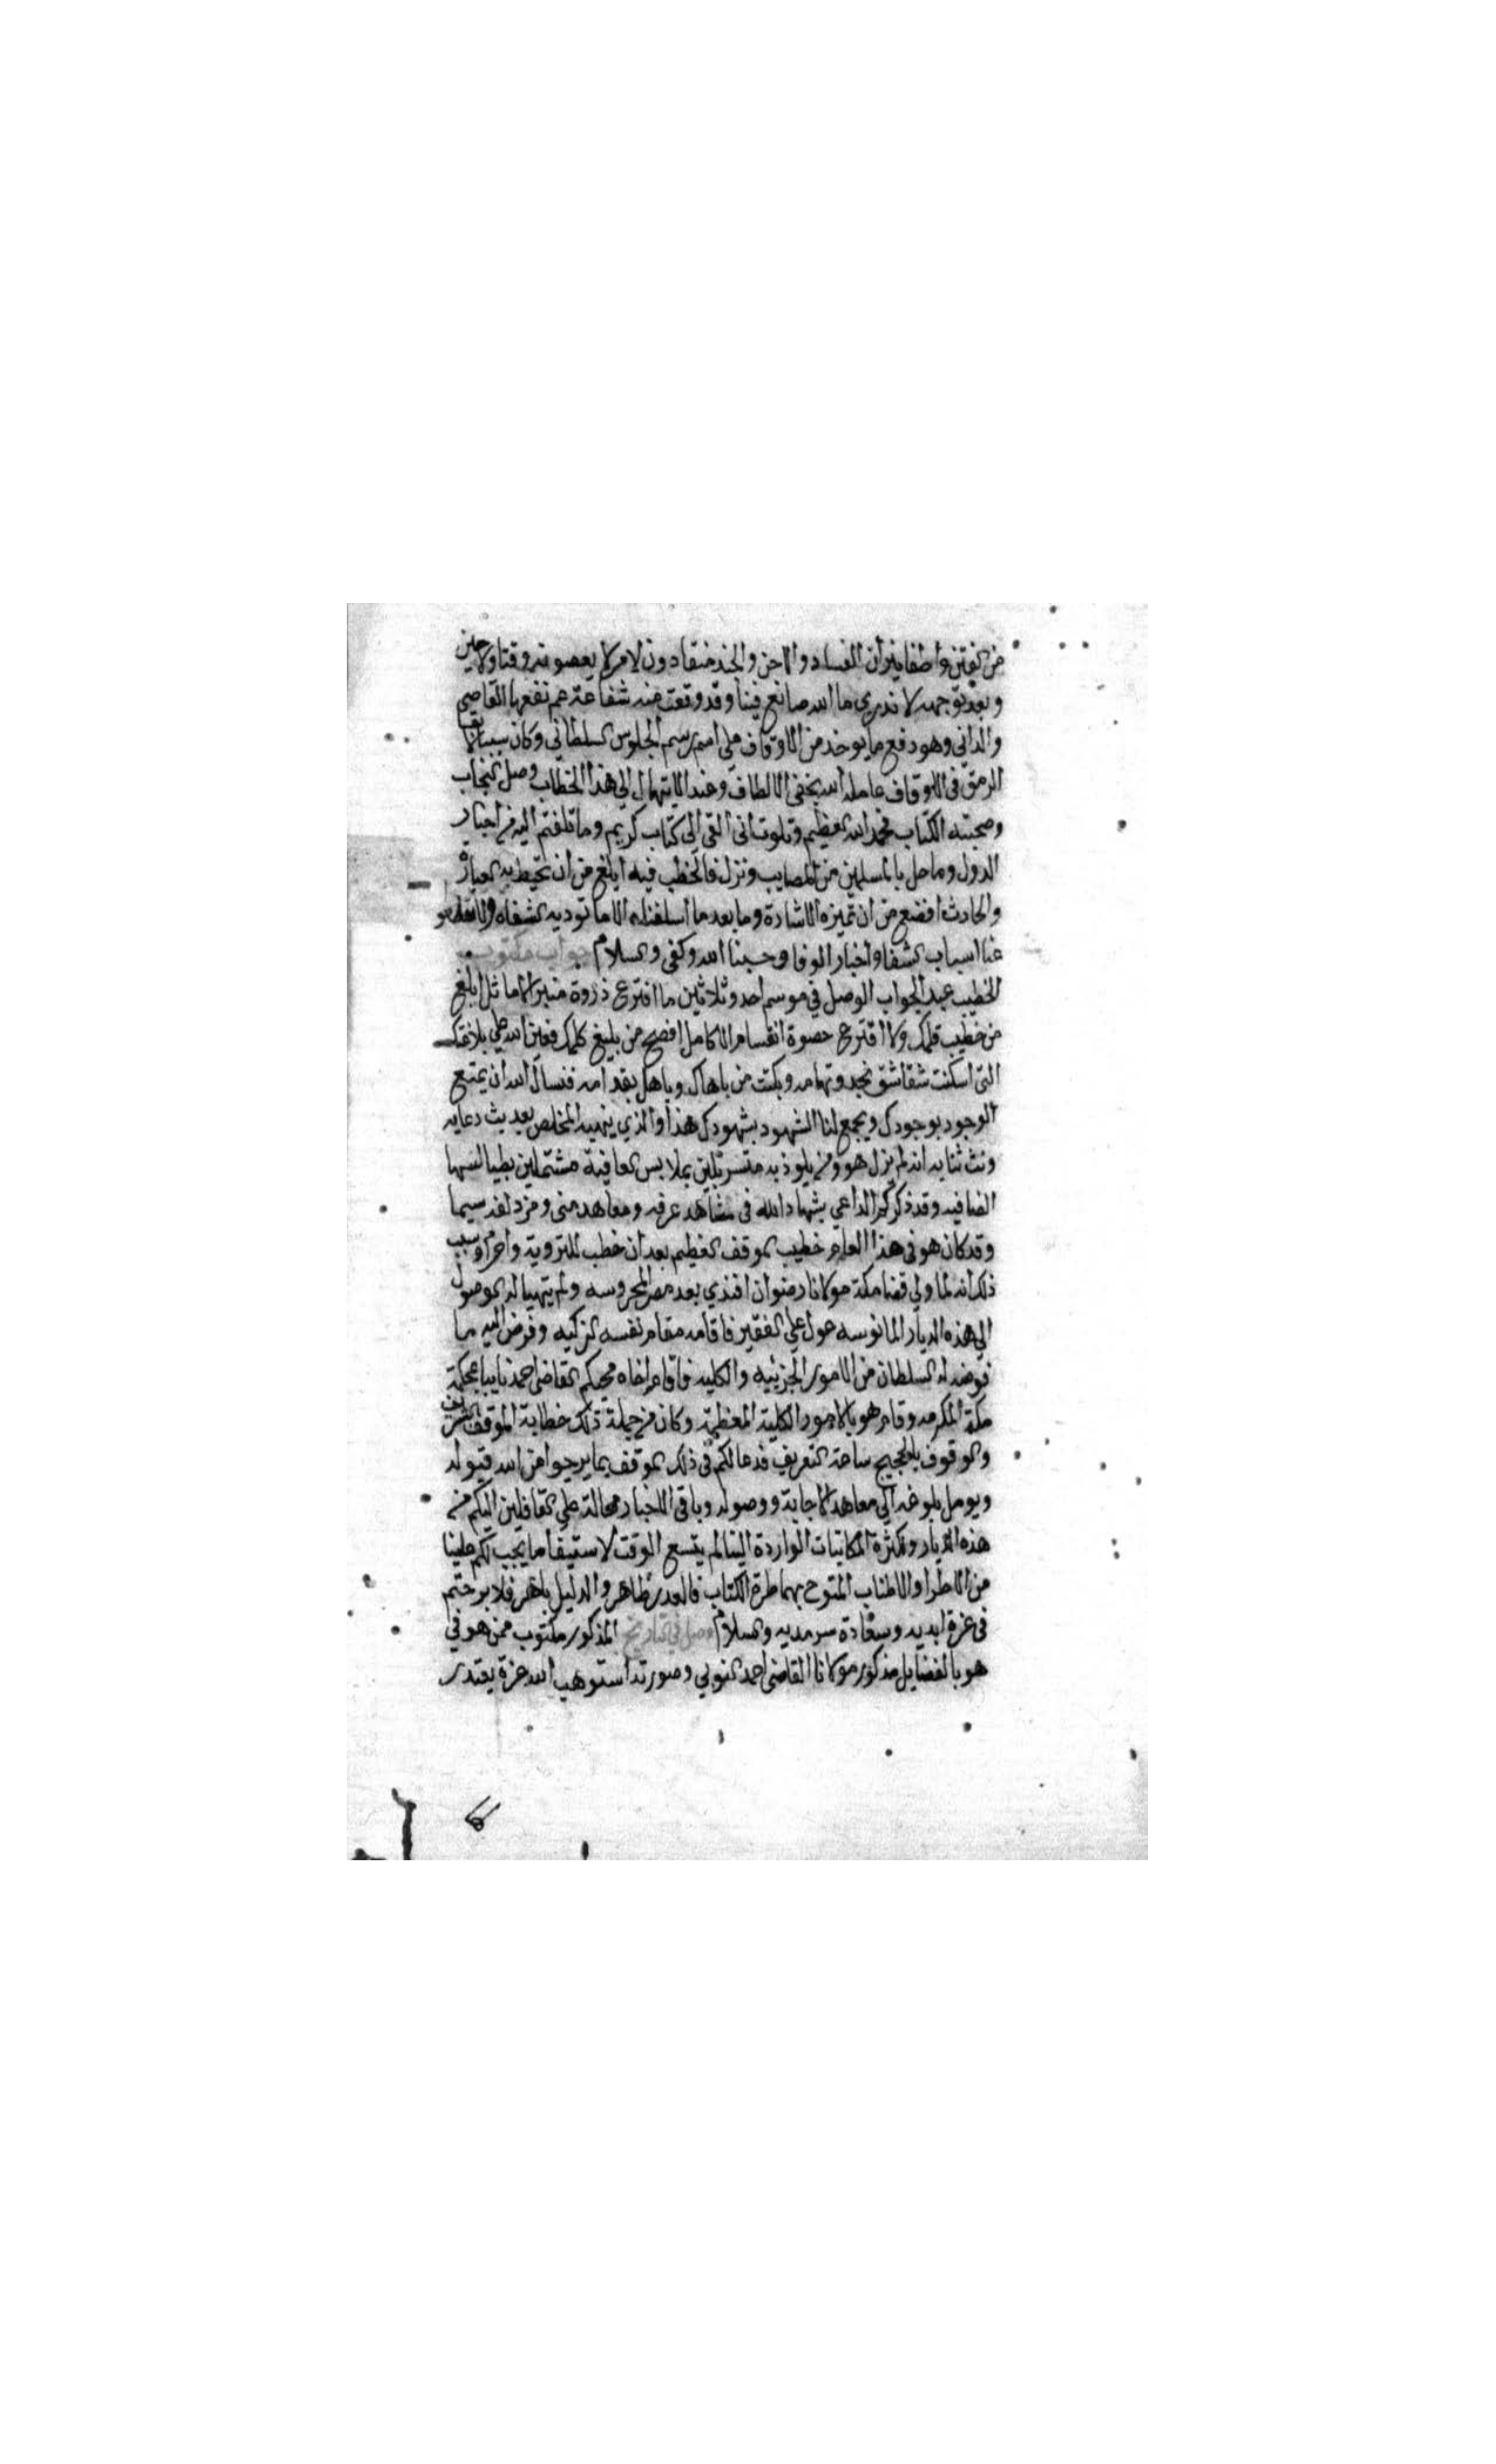 من الفتن واطفا نيران الفساد والاحن والجند منقادون لامره لا يعصونه وقتا ولا حين
وبعد توجهه لا ندري ما الله صانع فينا وقد وقعت منه شفاعة عم نفعها القاصي
والداني وهو دفع ما يوخذ من الاوقاف على اسم رسم الجلوس السلطاني وكان سببا لابقا
الرمق في الاوقاف عامله الله بخفي الالطاف وعند الانتها الى هذا الخطاب وصل النجاب
وصحبته الكتاب فحمد الله العظيم وتلوت اني القي الي كتاب كريم وما تلفتم اليه من اخبار
الدول وما حل بالمسلمين من المصايب ونزل فالخطب فيه ابلغ من ان تحيط به العبارة
والحادث افضع من ان تميزه الاشارة وما بعد ما اسلفناه الا ما توديه الشفاه
عنا اسباب الشفا واخبار الوفا وحسبنا الله وكفى والسلام جواب مكتوب
الخطيب عبد الجواب الوصل في موسم احد وثلاثين ما افترع ذروة منبر الاماثل ابلغ
من خطيب قلمك ولا اقترع صهوة الكامل افصح من بليغ كلمك فعين الله على بلاغتك
التي اسكنت شقاشق نجد وتهامه وبكت من باهاك وباهل بقدامه فنسال الله ان يمتع
الوجود بوجودك ويجمع لنا الشهود بشهودك هذا والذي ينهيه المخلص بعد بث دعايه
ونث ثنايه انه لم يزل هو ومن يلوذ به متسربلين بملابس العافية مشتملين بطيالسها
الضافيه وقد ذكركم الداعي بشهاد الله في مشاهد عرفه ومعاهد منى ومزدلفه سيما
وقد كان هو في هذا العام خطيب الموقف العظيم بعد ان خطب للتروية واحرم وسبب
ذلك انه لما ولي قضا مكة مولانا رضوان افندي بعد مصر المحروسه ولم يتهيا له الوصول
الى هذه الديار المانوسه عول على الفقير فاقامه مقام نفسه الزكيه وفوض اليه ما
فوضه له السلطان من الامور الجزئيه والكليه فاقام اخاه محبكم القاضي احمد نايبا بمحكمة
مكة المكرمه وقام هو بالامور الكلية المعظمة وكان من جملة ذلك خطابة الموقف الشريف
والوقوف بالحجيج ساحة التعريف فدعا لكم في ذلك الموقف بما يرجوا من الله قبوله
ويومل بلوغه الى معاهد الاجابة ووصوله وباقي الاخبار محالة على القافلين اليكم من
هذه الديار ولكثرة المكاتبات الواردة الينا لم يتسع الوقت لاستيفا ما يجب لكم علينا
من الاطرا والاطناب المتوج بهما طرة الكتاب فالعذر ظاهر والدليل باهر فلا برحتم
في عزة ابديه وسعادة سرمديه والسلام وصل في التاريخ المذكور مكتوب ممن هو في
هو بالفضايل مذكور مولانا القاضي احمد النوبي وصورته استوهب الله عزة يقتدر